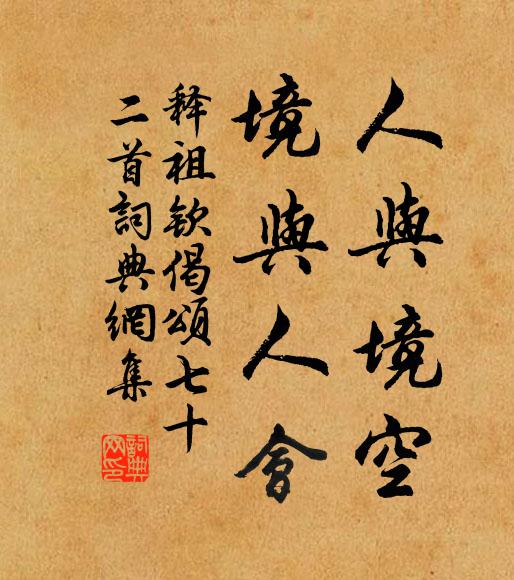 人與境空
境與人會
释祖钦偈頌七十
二首詞典網集
詞典
网印